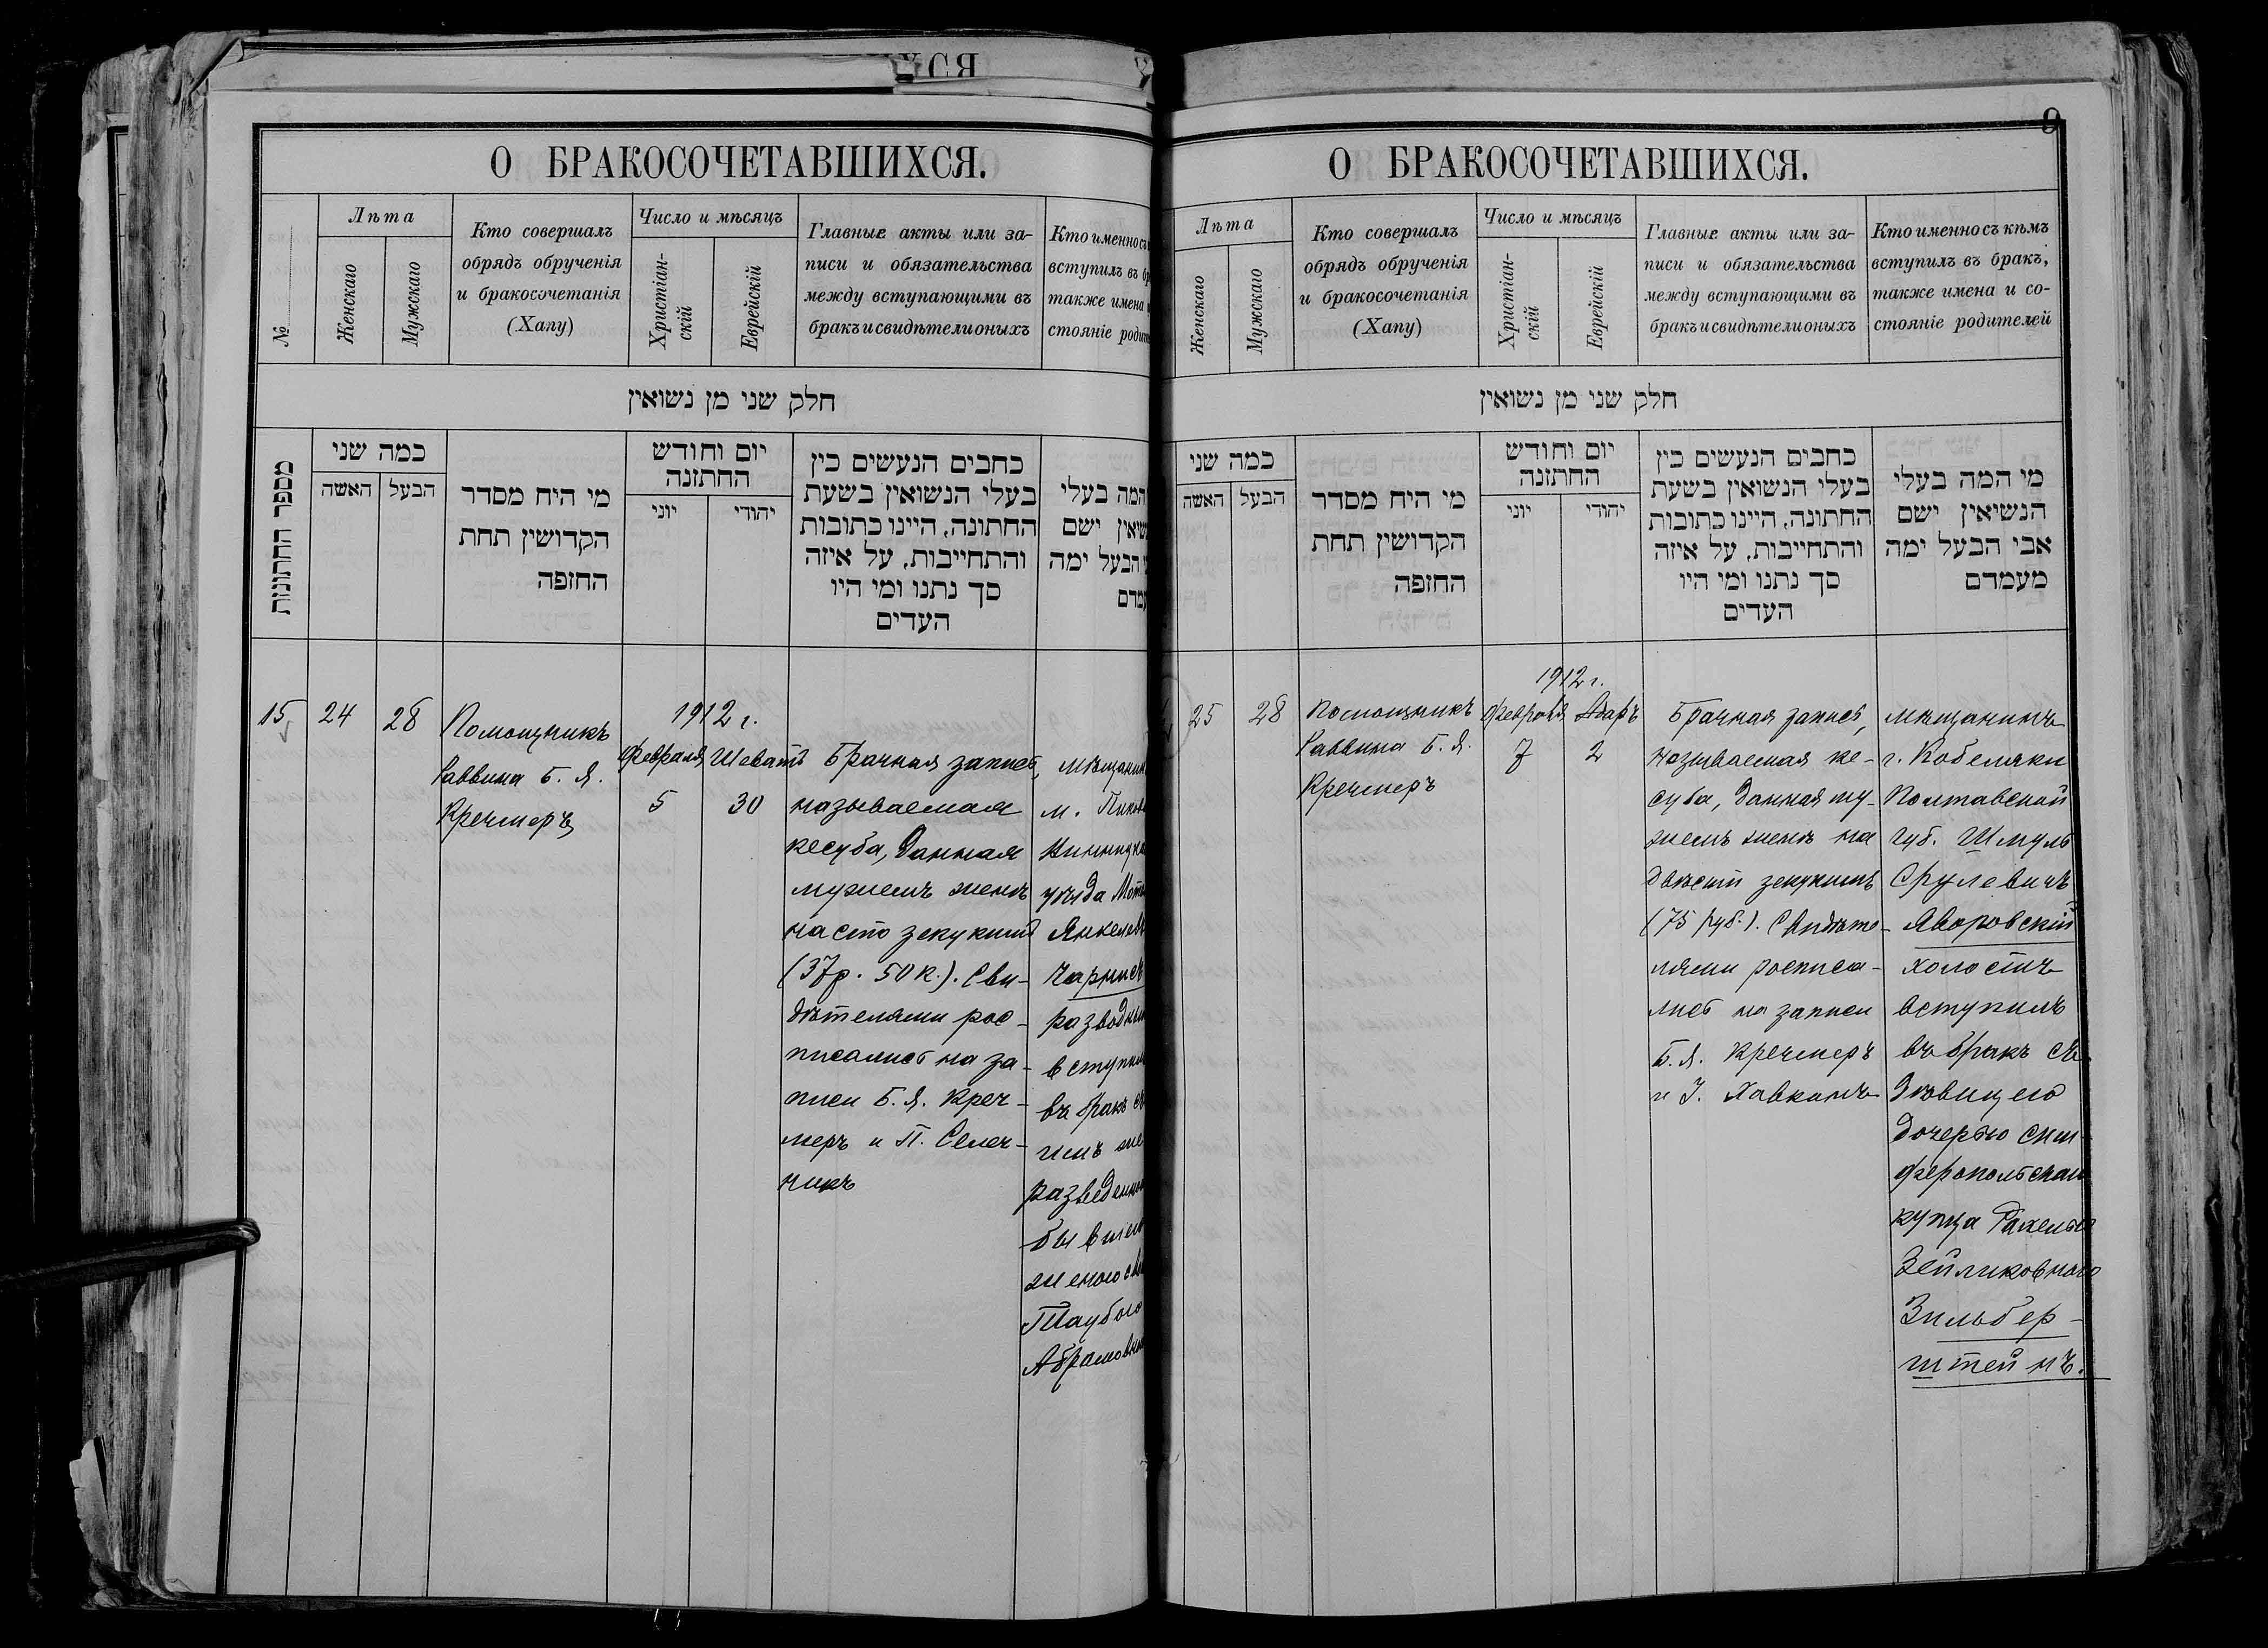 ХСЯ
О БРАКОСОЧЕТАВШИХСЯ.
№
Лѣта
Женскаго
Мужскаго
Кто совершалъ
обрядъ обрученія
и бракосочетанія
(Хапу)
Число и мѣсяцъ
Христіан-
скій
Еврейскій
Главные акты или за-
писи и обязательства
между вступающими въ
бракъ и свидѣтели оныхъ
Кто именно съ
вступилъ въ
также имена
стояніе
חלק שני מן נשואין
מספר החתונות
כמה שני
האשה
הבעל
מי היח מסדר
הקדושין תחת
החזפה
יום וחודש
החתזנה
יוני
יהודי
כחבים הנעשים כין
בעלי הנשואין בשעת
החתונה, היינו כתובות
והתחייבות, על איזה
סך נתנו ומי היו
העדים
המה בעלי
ישם
הבעל ימה
15
24
28
Помощникъ
Раввина Б. Я.
Кречмеръ
1912 г.
Февраля Шеватъ
5 30
Брачная запись,
называемая
кесуба, данная
мужемъ женѣ
на сто зекукимъ
(37р. 50 к.). Сви-
дѣтелями рос-
писались на за-
писи Б. Я. Креч-
меръ и П. Селеч-
никъ
м.
уѣзда
въ бракъ
9
О БРАКОСОЧЕТАВШИХСЯ.
Лѣта
Женскаго
Мужскаго
Кто совершалъ
обрядъ обрученія
и бракосочетанія
(Хапу)
Число и мѣсяцъ
Христіан-
скій
Еврейскій
Главные акты или за-
писи и обязательства
между вступающими въ
бракъ и свидѣтели оныхъ
Кто именно съ кѣмъ
вступилъ въ бракъ,
также имена и со-
стояніе родителей
חלק שני מן נשואין
כמה שני
האשה
הבעל
מי היח מסדר
הקדושין תחת
החזפה
יום וחודש
החתזנה
יוני
יהודי
כחבים הנעשים כין
בעלי הנשואין בשעת
החתונה, היינו כתובות
והתחייבות, על איזה
סך נתנו ומי היו
העדים
מי המה בעלי
הנשיאין ישם
אבי הבעל ימה
מעמדם
25
28
Помощникъ
Раввина Б. Я.
Кречмеръ
1912 г.
Февраля Адаръ
7 2
Брачная запись,
называемая ке-
суба, данная му-
жемъ женѣ на
двѣсти зекукимъ
(75 руб.). Свидѣте-
лями росписа-
лись на записи
Б. Я. Кречмеръ
и І. Хавкинъ
мѣщанинъ
г. Кобеляки
Полтавской
губ. Шмуль
Срулевичъ
Яворовскій
холостъ
вступилъ
въ бракъ съ
дѣвицею
дочерью сим-
феропольскаго
купца Рахелью
Зейликовною
Зильбер-
штейнъ.